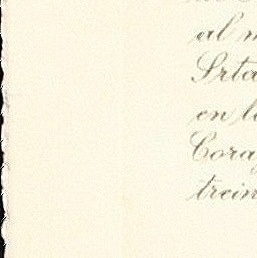 al m
Srta
en l
Cora
trein